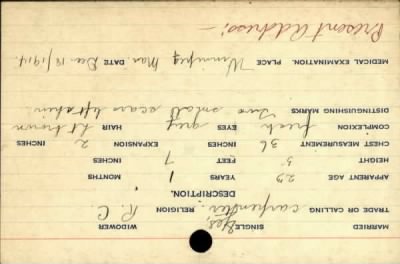 MARRIED SINGLE Yes, WIDOWER
TRADE OR CALLING carpenter. RELIGION R. C.
DESCRIPTION.
APPARENT AGE 29 YEARS 1 MONTHS
HEIGHT 5 FEET 7 INCHES
CHEST MEASUREMENT 36 EXPANSION 2 INCHES
COMPLEXION fresh EYES grey HAIR Lt brown
DISTINGUISHING MARKS Two small scars left shin
MEDICAL EXAMINATION. PLACE Winnipeg Man. DATE Dec 18/1914.
Present address:—